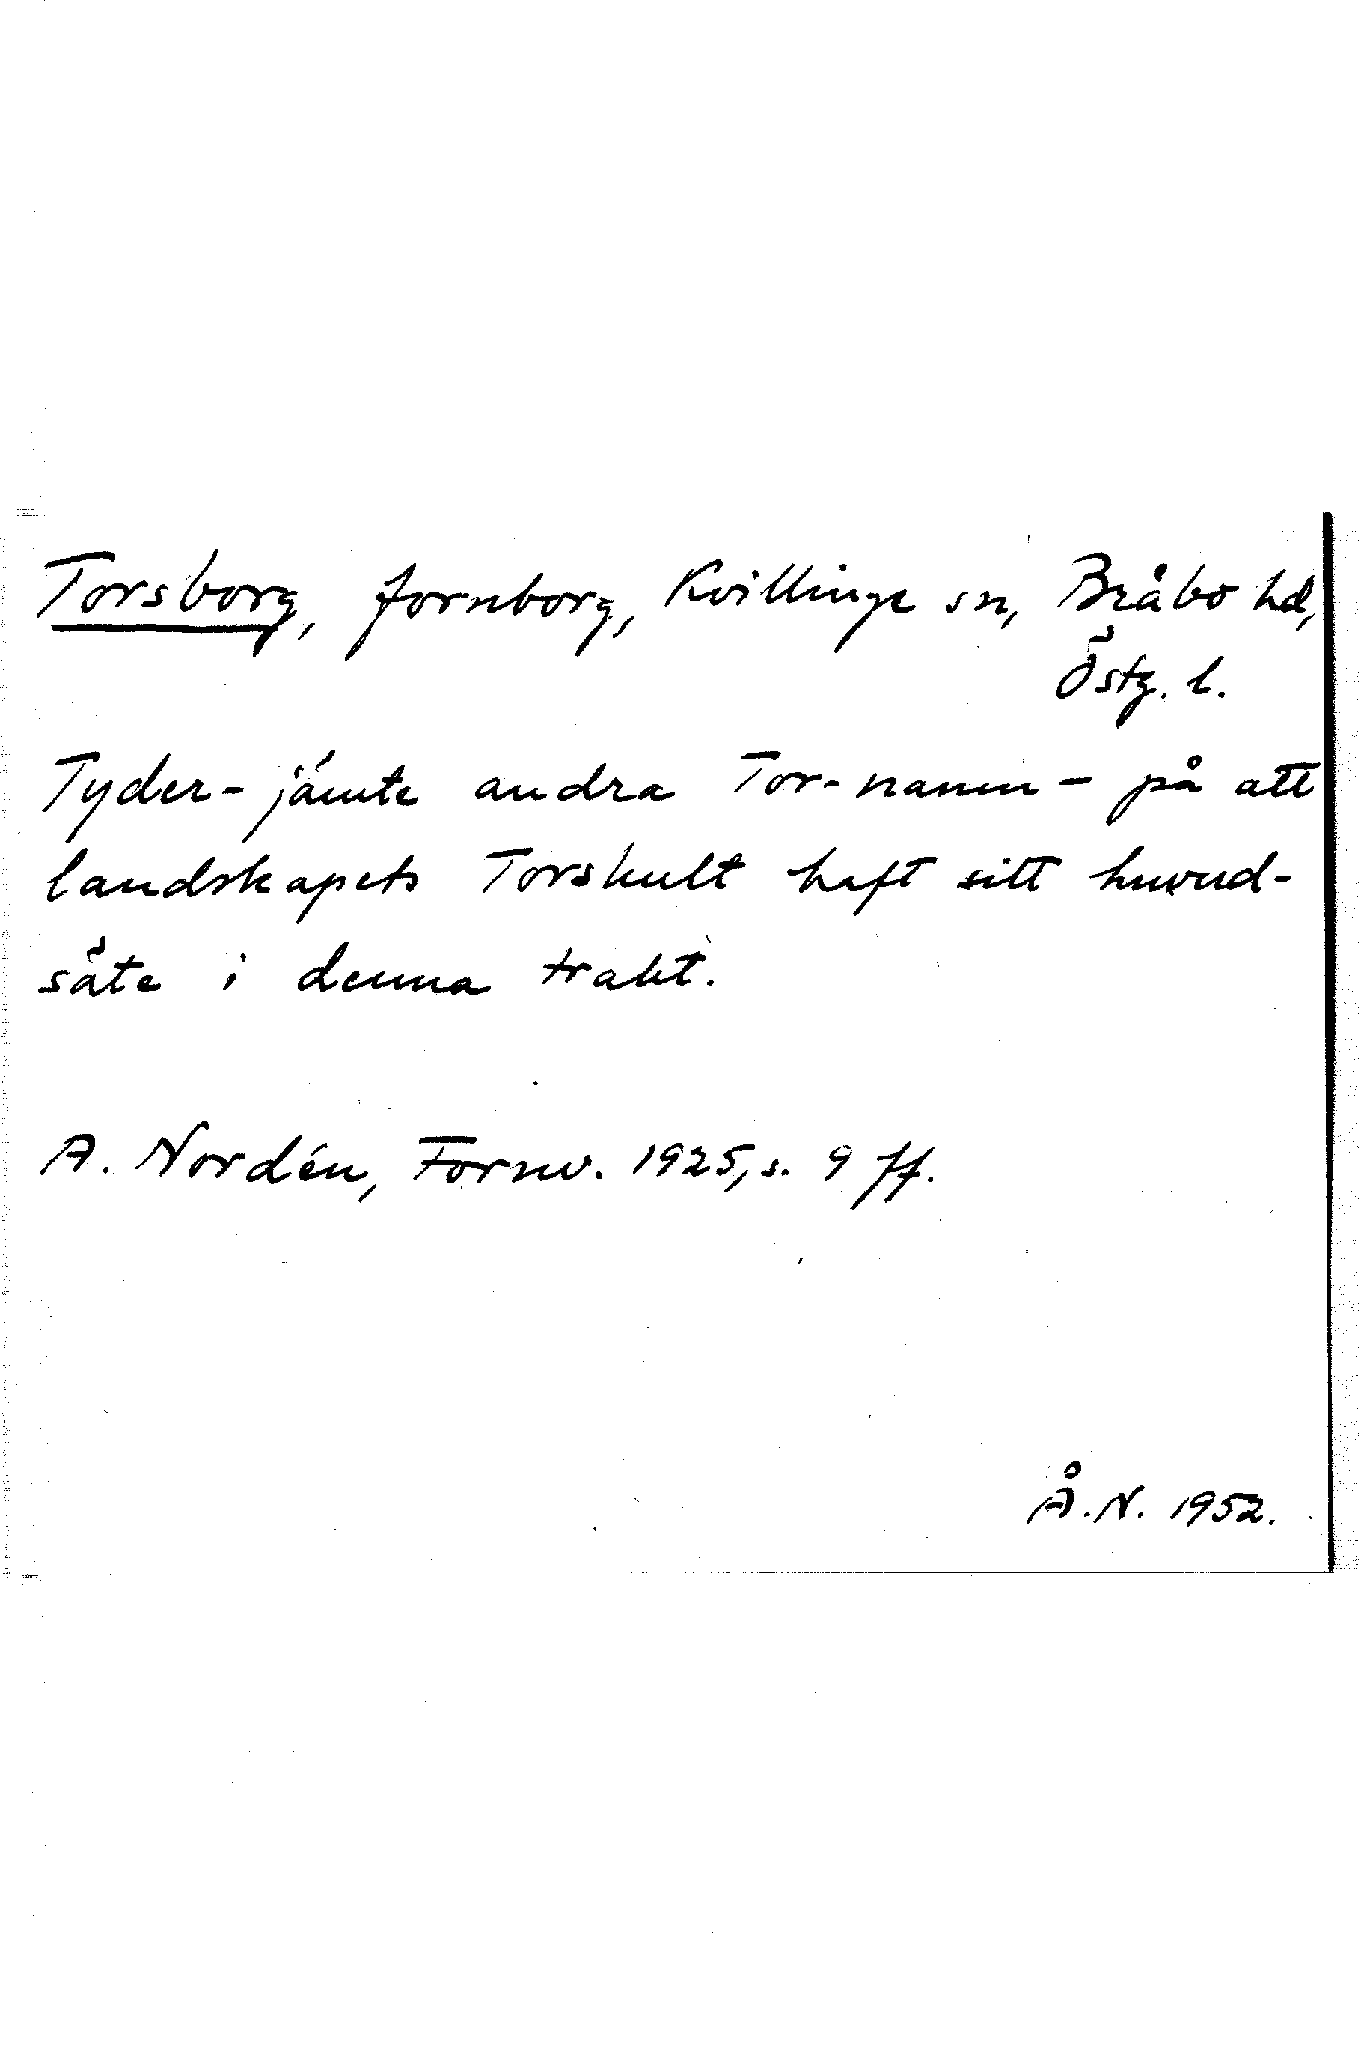 Torsborg, fornborg, Kvillinge sn, Bråbo hd,
Östg. l.
Tyder - jämte andra Tor-namn - på att
landskapets Torskult haft sitt huvud-
säte i denna trakt.
A. Nordén, Fornv. 1925, s. 9 ff.
Å.N. 1952.